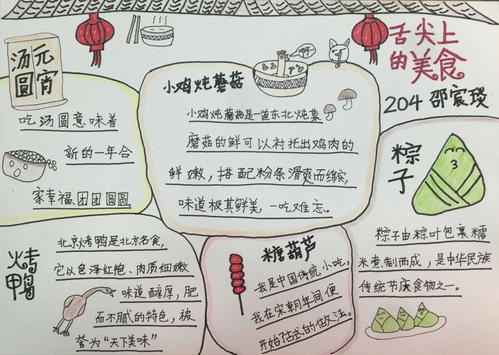 舌尖上
的美食
204 邵宸琰
元宵
汤圆
吃汤圆意味着
新的一年合
家幸福、团团圆圆
小鸡炖蘑菇
小鸡炖蘑菇是一道东北炖菜
蘑菇的鲜可以衬托出鸡肉的
鲜嫩,搭配粉条滑爽而绵软,
味道极其鲜美,一吃难忘。
粽子
粽子由粽叶包裹糯
米煮制而成,是中华民族
传统节庆食物之一。
烤鸭
北京烤鸭是北京名食,
它以色泽红艳、肉质细嫩
味道醇厚,肥
而不腻的特色,被
誉为“天下美味”
糖葫芦
我是中国传统小吃,
我在宋朝年间便
开始了古式的做法。